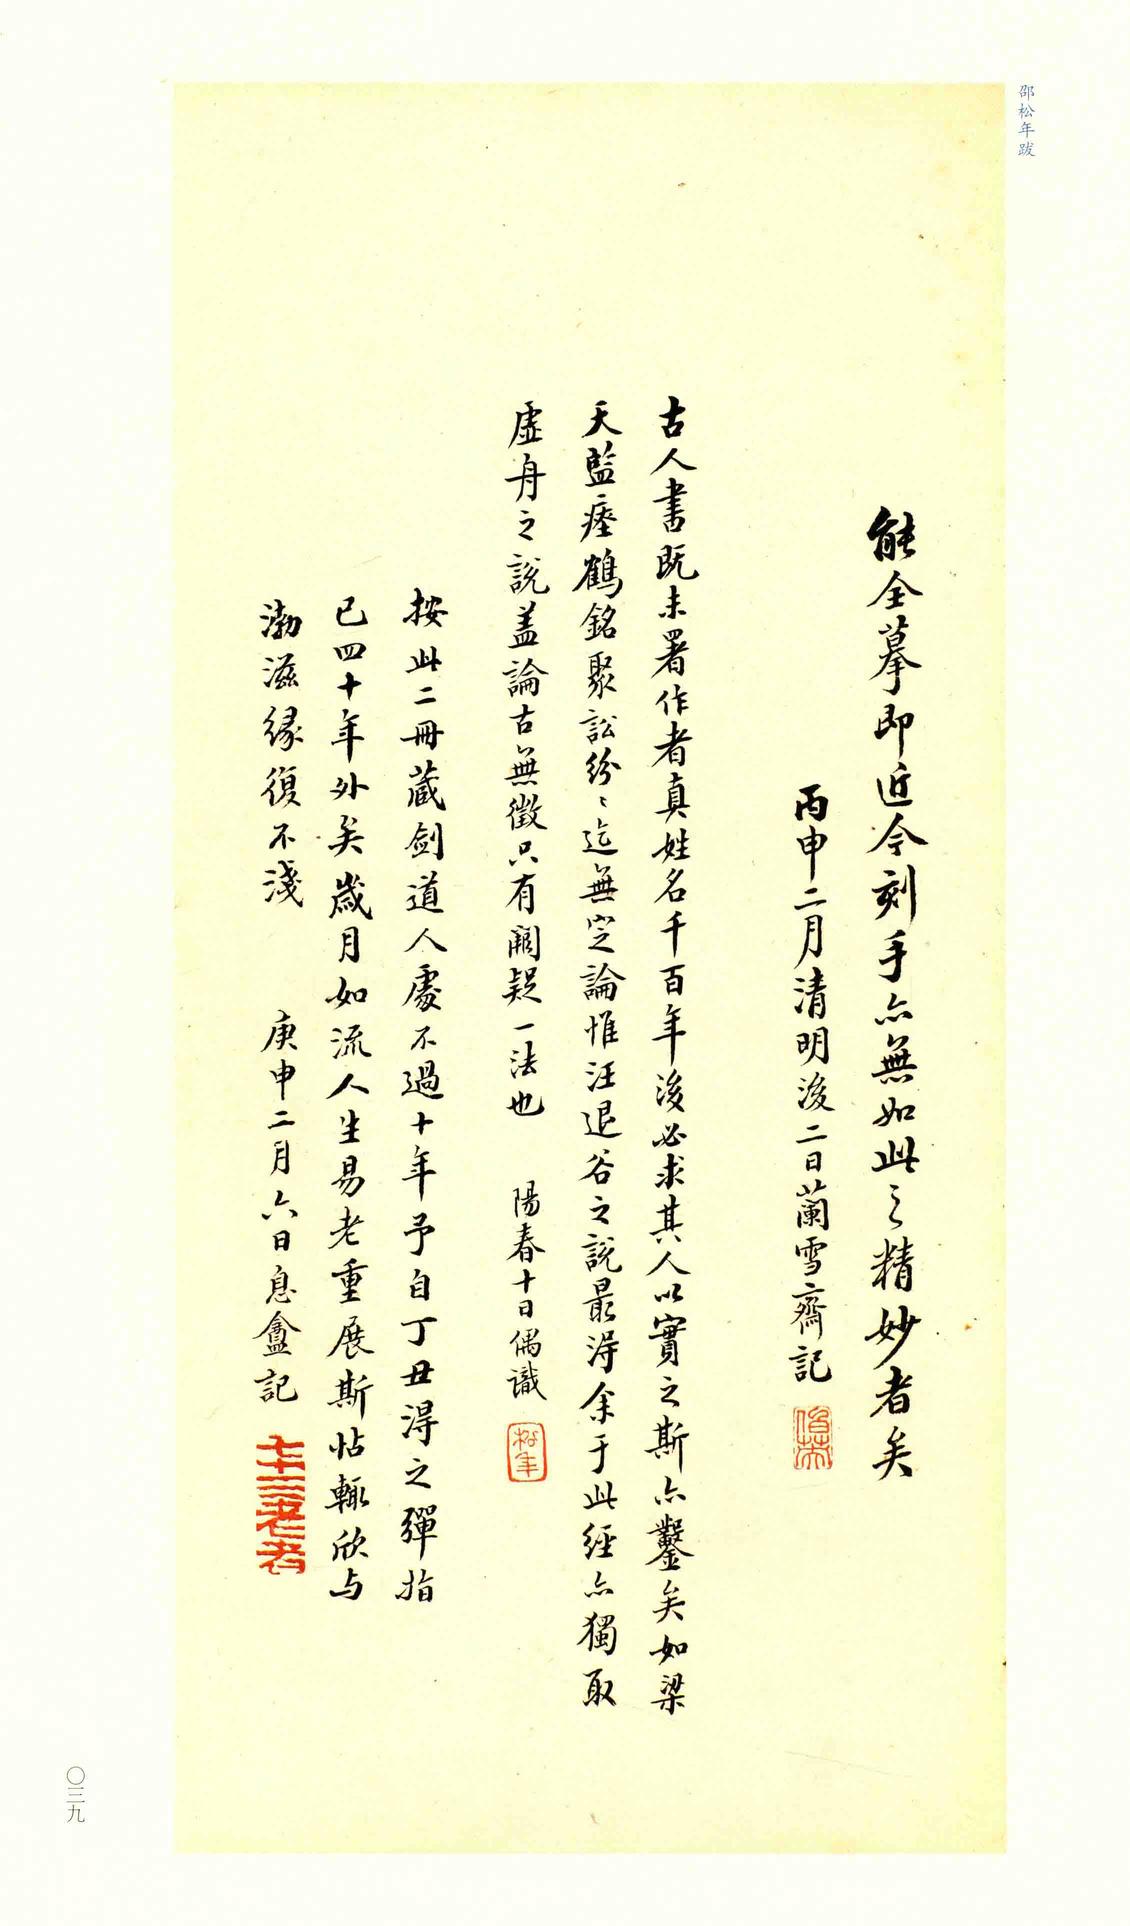 邵松年跋
能全摹即近今刻手亦無如此之精妙者矣
丙申二月清明後二日蘭雪齋記
古人書既未署作者真姓名千百年後必求其人以實之斯亦鑿矣如梁
天監瘞鶴銘聚訟紛〻迄無定論惟汪退谷之說最得余于此經亦獨取
虛舟之說蓋論古無徵只有闕疑一法也 陽春十日偶識
松年
按此二冊藏劍道人處不過十年予自丁丑得之彈指
已四十年外矣歲月如流人生易老重展斯帖輒欣与
渤滋緣復不淺 庚申二月六日息盦記
七十三老者
〇三九